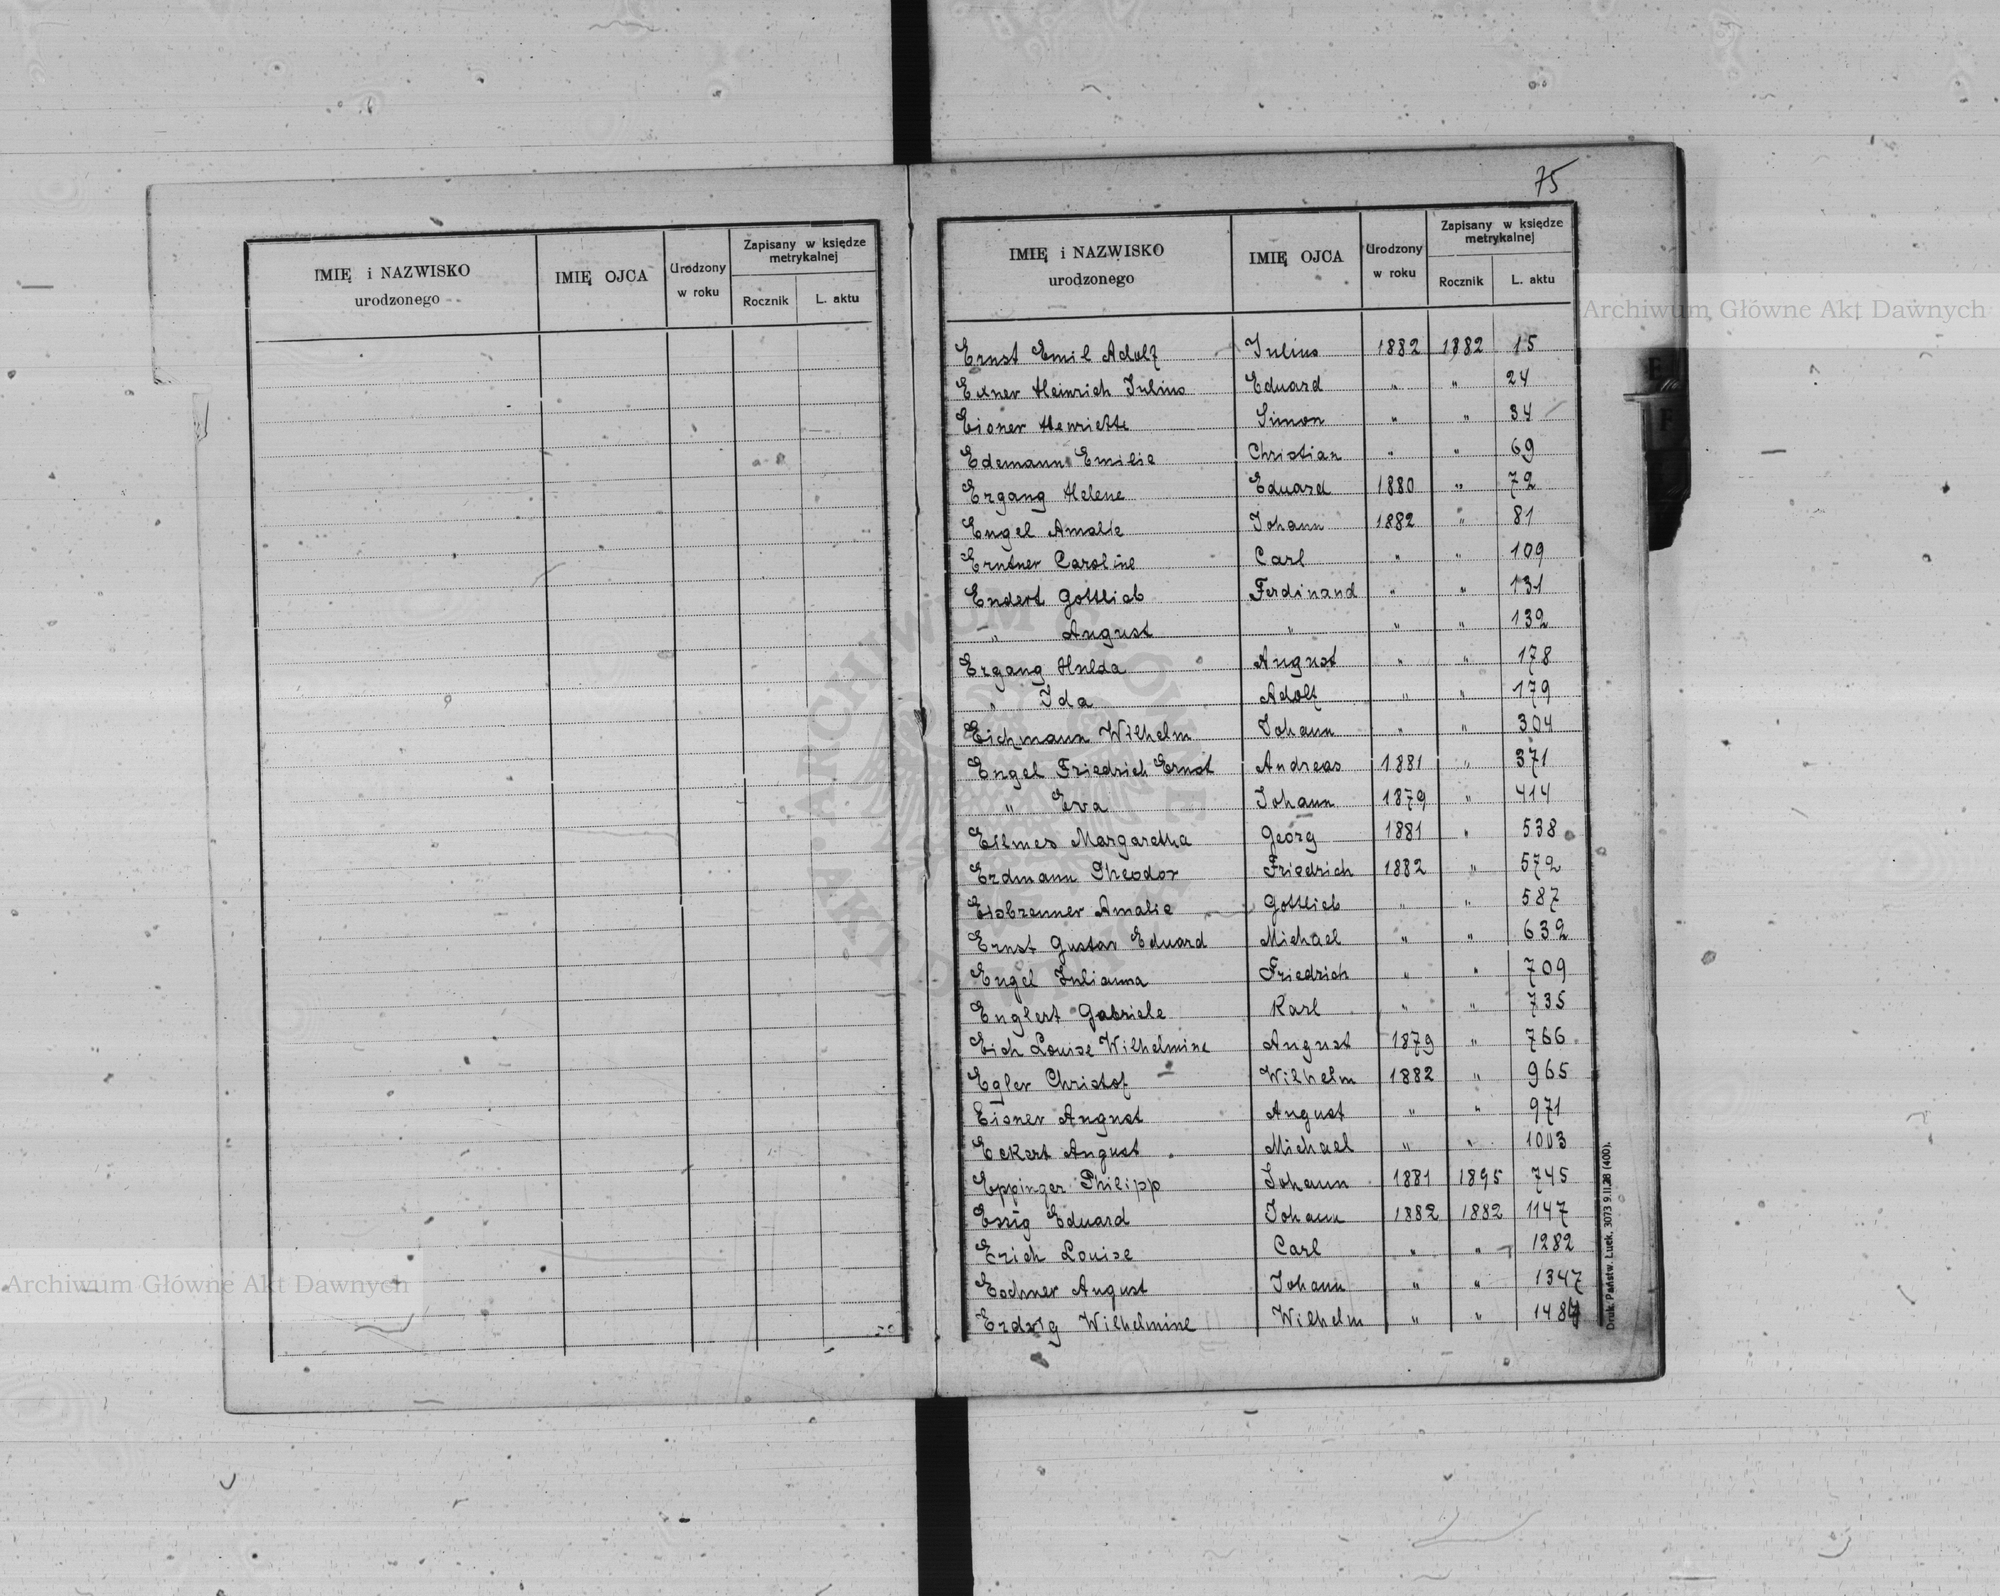 75
IMIĘ i NAZWISKO urodzonego
IMIĘ OJCA
Urodzony w roku
Zapisany w księdze metrykalnej
Rocznik
L. aktu
IMIĘ i NAZWISKO urodzonego
IMIĘ OJCA
Urodzony w roku
Zapisany w księdze metrykalnej
Rocznik
L. aktu
Ernst Emil Adolf Julius 1882 1882 15
Exner Heinrich Julius Eduard " " 24
Eisner Henriette Simon " " 34
Edemann Emilie Christian " " 69
Ergang Helene Eduard 1880 " 72
Engel Amalie Johann 1882 " 81
Erntner Caroline Carl " " 109
Endert Gottlieb Ferdinand " " 131
" August " " " 132
Ergang Hulda August " " 178
" Ida Adolf " " 179
Eichmann Wilhelm Johann " " 304
Engel Friedrich Ernst Andreas 1881 " 371
" Eva Johann 1879 " 414
Eilmes Margaretha Georg 1881 " 538
Erdmann Theodor Friedrich 1882 " 572
Eisbrenner Amalie Gottlieb " " 587
Ernst Gustav Eduard Michael " " 632
Engel Julianna Friedrich " " 709
Englert Gabriele Karl " " 735
Eich Louise Wilhelmine August 1879 " 766
Egler Christof Wilhelm 1882 " 965
Eisner August August " " 971
Eckert August Michael " " 1003
Eppinger Philipp Johann 1881 1895 745
Essig Eduard Johann 1882 1882 1147
Erich Louise Carl " " 1282
Eschner August Johann " " 1347
Wilhelmine Wilhelm " "
Druk. Państw. Łuck. 3073 9.II.28 (400).
E
F
Archiwum Główne Akt Dawnych
Archiwum Główne Akt Dawnych
ARCHIWUM GŁÓWNE AKT DAWNYCH